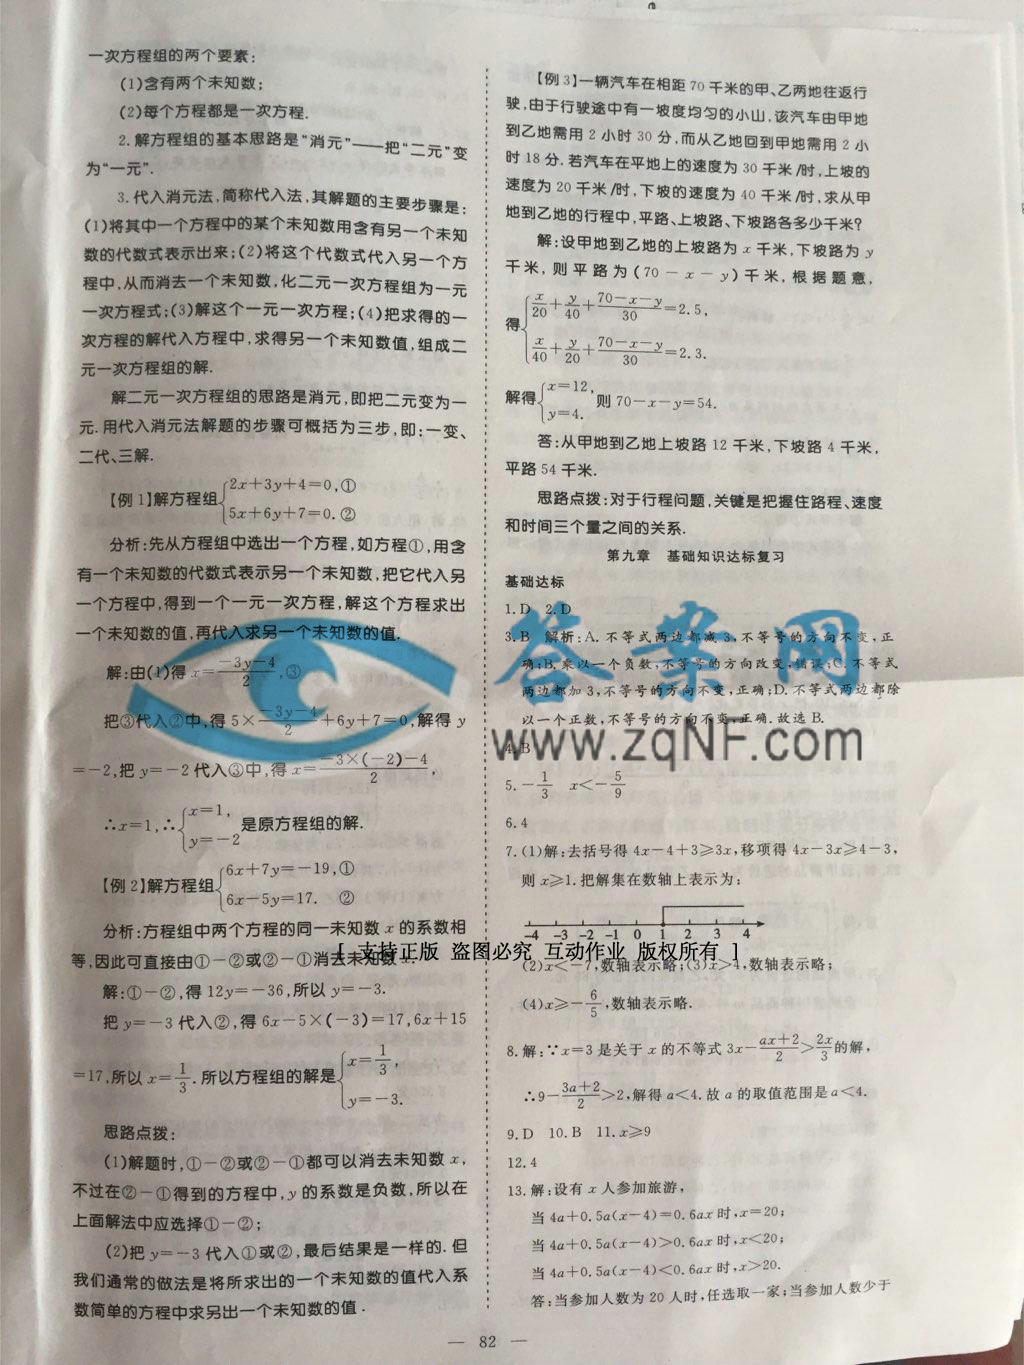 一次方程组的两个要素:
(1)含有两个未知数;
(2)每个方程都是一次方程.
2.解方程组的基本思路是“消元”——把“二元”变
为“一元”.
3.代入消元法,简称代入法,其解题的主要步骤是:
(1)将其中一个方程中的某个未知数用含有另一个未知
数的代数式表示出来;(2)将这个代数式代入另一个方
程中,从而消去一个未知数,化二元一次方程组为一元
一次方程式;(3)解这个一元一次方程;(4)把求得的一
次方程的解代入方程中,求得另一个未知数值,组成二
元一次方程组的解.
解二元一次方程组的思路是消元,即把二元变为一
元.用代入消元法解题的步骤可概括为三步,即:一变、
二代、三解.
【例1】解方程组{2x+3y+4=0,①
5x+6y+7=0.②
分析:先从方程组中选出一个方程,如方程①,用含
有一个未知数的代数式表示另一个未知数,把它代入另
一个方程中,得到一个一元一次方程,解这个方程求出
一个未知数的值,再代入求另一个未知数的值.
解:由(1)得 x=(-3y-4)/2,③
把③代入②中,得 5×(-3y-4)/2+6y+7=0,解得 y
=-2,把 y=-2 代入③中,得 x=(-3×(-2)-4)/2,
∴x=1,∴{x=1,
y=-2 是原方程组的解.
【例2】解方程组{6x+7y=-19,①
6x-5y=17. ②
分析:方程组中两个方程的同一未知数 x 的系数相
等,因此可直接由①-②或②-①消去未知数 x.
解:①-②,得 12y=-36,所以 y=-3.
把 y=-3 代入②,得 6x-5×(-3)=17,6x+15
=17,所以 x=1/3.所以方程组的解是{x=1/3,
y=-3.
思路点拨:
(1)解题时,①-②或②-①都可以消去未知数 x,
不过在②-①得到的方程中,y 的系数是负数,所以在
上面解法中应选择①-②;
(2)把 y=-3 代入①或②,最后结果是一样的.但
我们通常的做法是将所求出的一个未知数的值代入系
数简单的方程中求另出一个未知数的值.
【例3】一辆汽车在相距70千米的甲、乙两地往返行
驶,由于行驶途中有一坡度均匀的小山,该汽车由甲地
到乙地需用 2 小时 30 分,而从乙地回到甲地需用 2 小
时18分.若汽车在平地上的速度为 30 千米/时,上坡的
速度为 20 千米/时,下坡的速度为 40 千米/时,求从甲
地到乙地的行程中,平路、上坡路、下坡路各多少千米?
解:设甲地到乙地的上坡路为 x 千米,下坡路为 y
千米,则平路为(70-x-y)千米,根据题意,
得{x/20+y/40+(70-x-y)/30=2.5,
x/40+y/20+(70-x-y)/30=2.3.
解得{x=12,
y=4. 则 70-x-y=54.
答:从甲地到乙地上坡路 12 千米,下坡路 4 千米,
平路 54 千米.
思路点拨:对于行程问题,关键是把握住路程、速度
和时间三个量之间的关系.
第九章 基础知识达标复习
基础达标
1.D 2.D
3.B 解析:A.不等式两边都减 3,不等号的方向不变,正
确;B.乘以一个负数,不等号的方向改变,错误;C.不等式
两边都加 3,不等号的方向不变,正确;D.不等式两边都除
以一个正数,不等号的方向不变,正确.故选 B.
4.B
5.-1/3 x<-5/9
6.4
7.(1)解:去括号得 4x-4+3≥3x,移项得 4x-3x≥4-3,
则 x≥1.把解集在数轴上表示为:
-4 -3 -2 -1 0 1 2 3 4
(2)x<-7,数轴表示略;(3)x>4,数轴表示略;
(4)x≥-6/5,数轴表示略.
8.解:∵x=3 是关于 x 的不等式 3x-(ax+2)/2>2x/3的解,
∴9-(3a+2)/2>2,解得 a<4.故 a 的取值范围是 a<4.
9.D 10.B 11.x≥9
12.4
13.解:设有 x 人参加旅游,
当 4a+0.5a(x-4)=0.6ax 时,x=20;
当 4a+0.5a(x-4)>0.6ax 时,x<20;
当 4a+0.5a(x-4)<0.6ax 时,x>20.
答:当参加人数为 20 人时,任选取一家;当参加人数少于
— 82 —
答案网
www.zqNF.com
[ 支持正版 盗图必究 互动作业 版权所有 ]